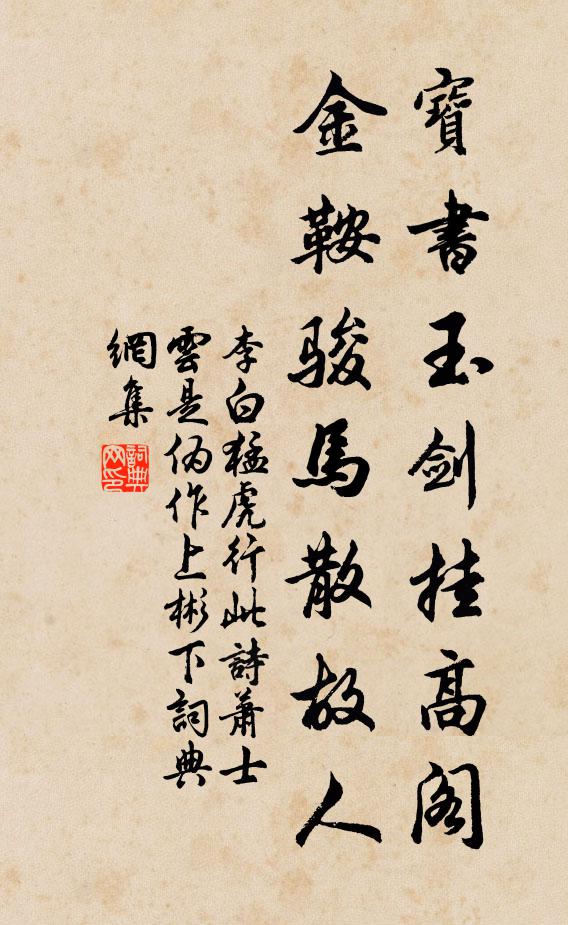 寶書玉劍挂高閣
金鞍駿馬散故人
李白猛虎行此詩蕭士
雲是偽作上彬下詞典
網集
詞典
网印